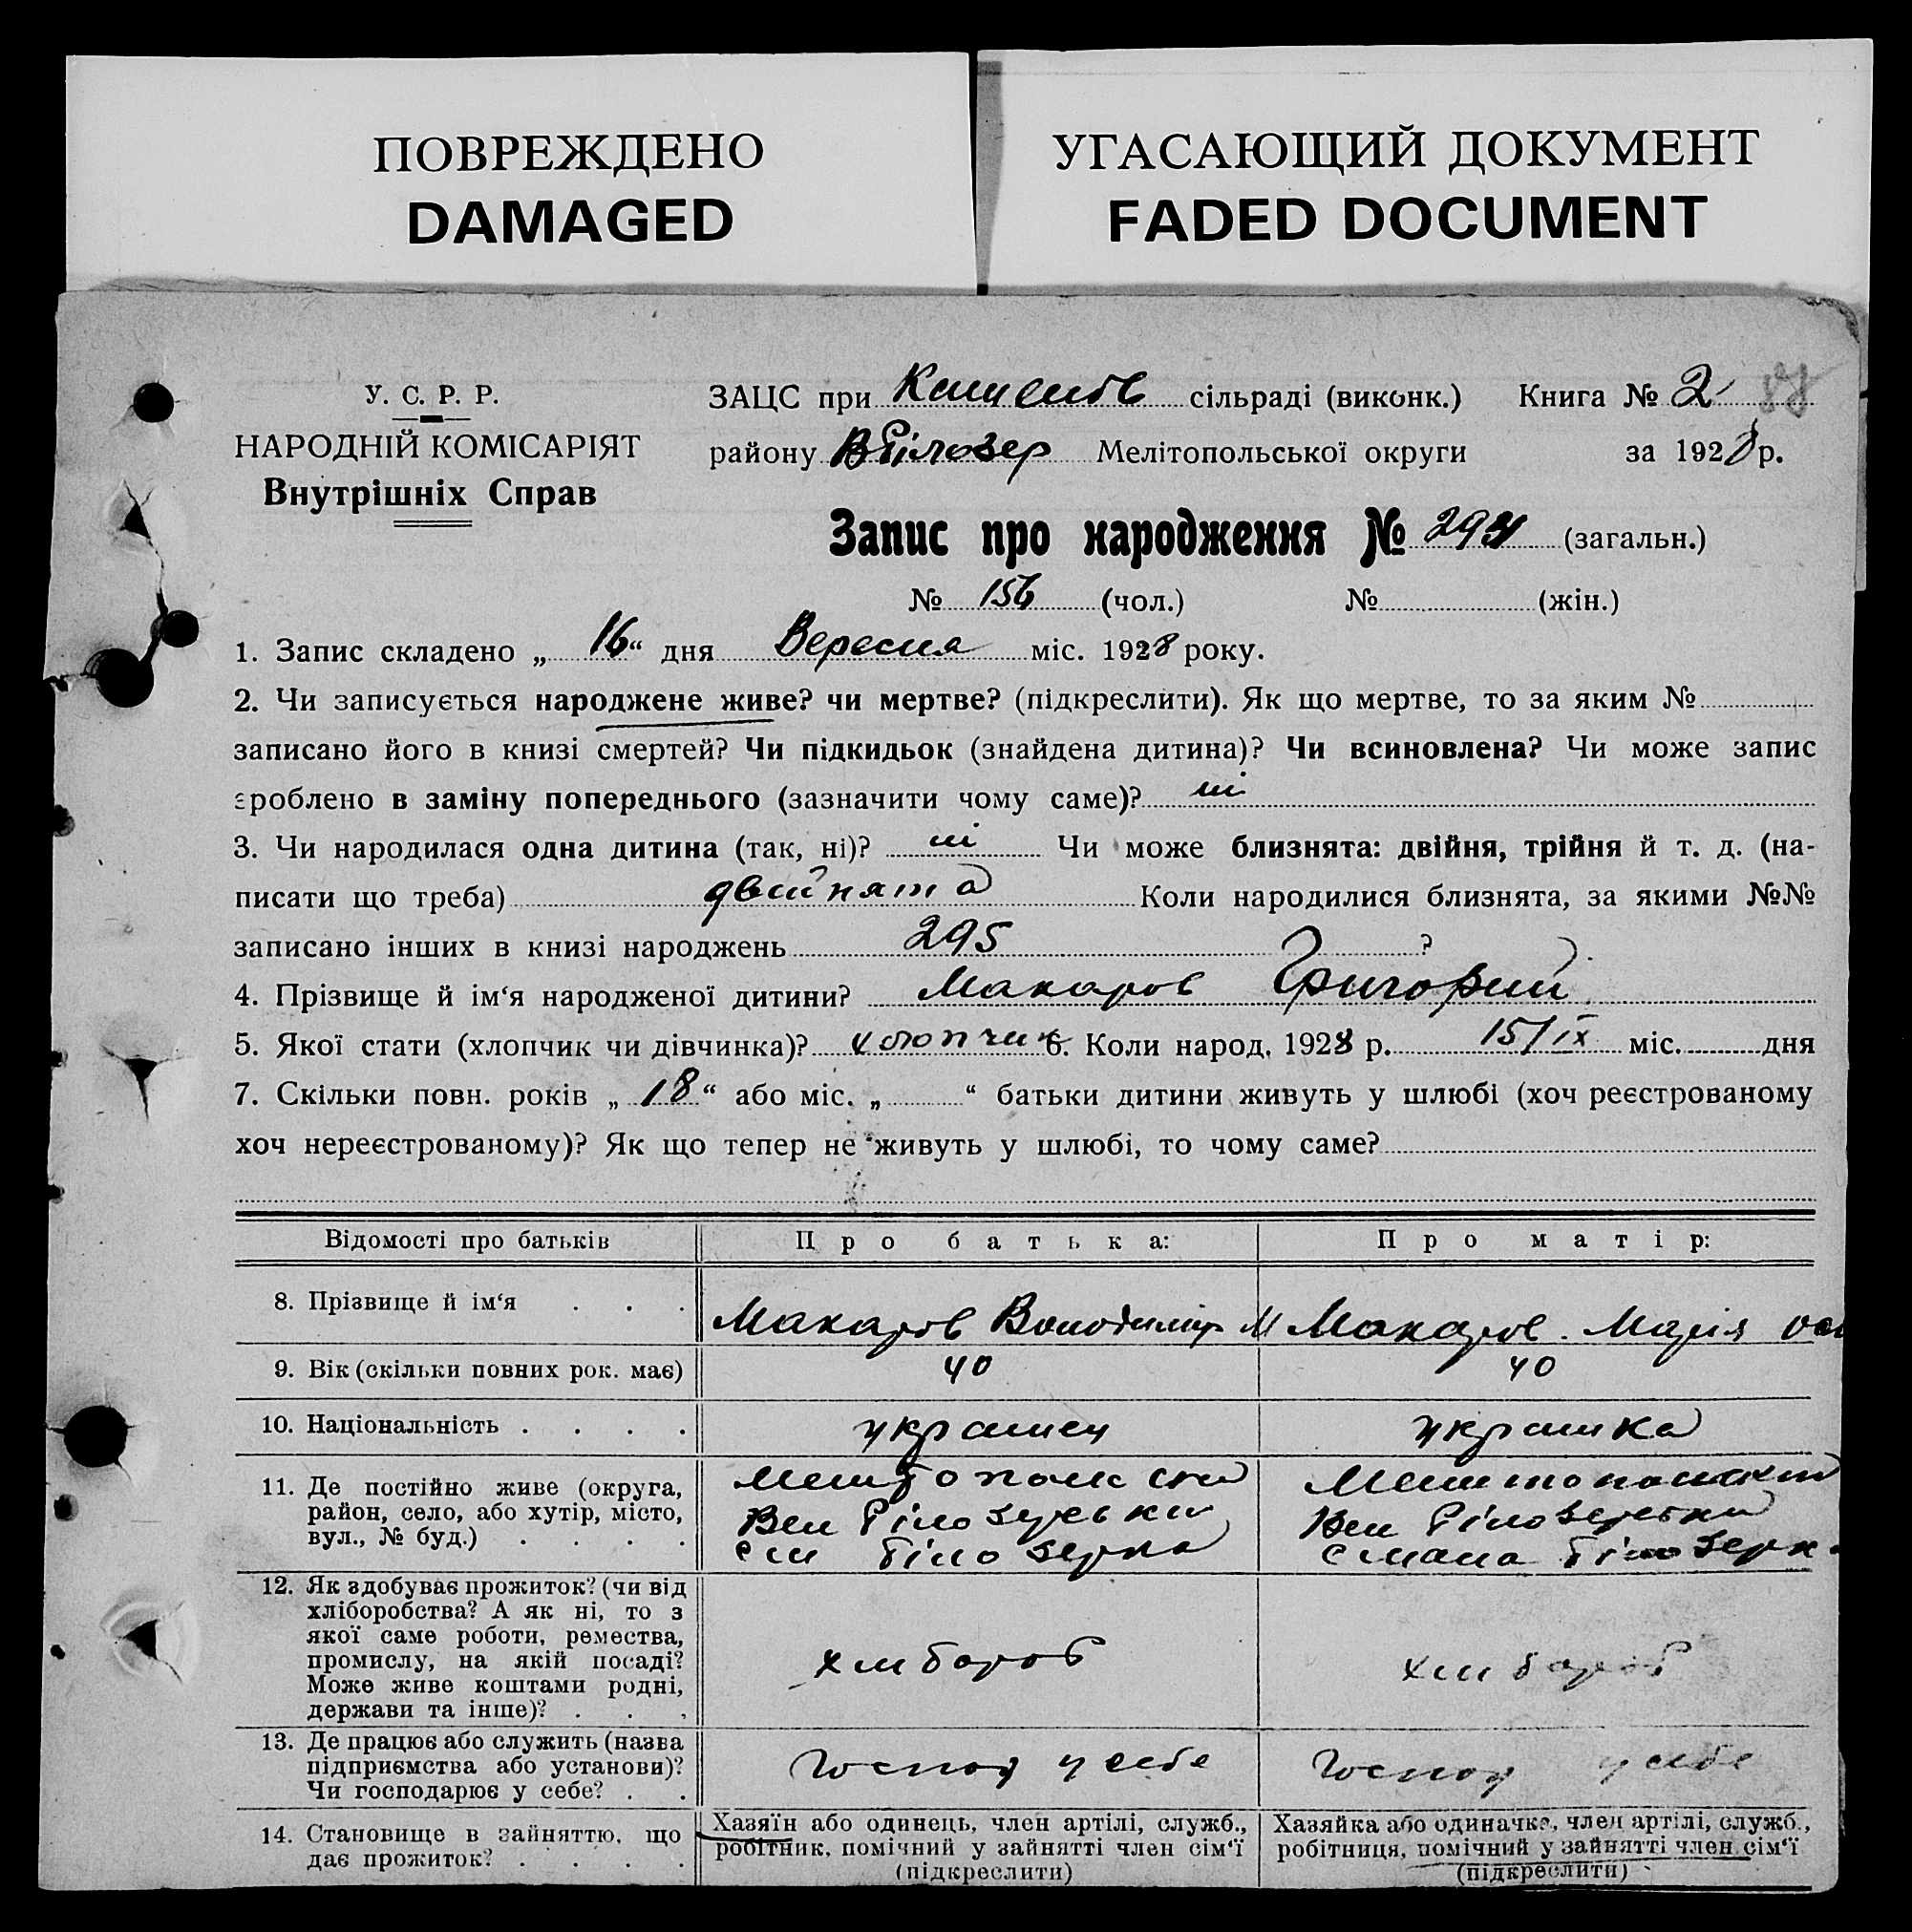 ПОВРЕЖДЕНО
DAMAGED
УГАСАЮЩИЙ ДОКУМЕНТ
FADED DOCUMENT
У. С. Р. Р.
НАРОДНІЙ КОМІСАРІЯТ
Внутрішніх Справ
ЗАЦС при сільраді (виконк.) Книга № 2
району Мелітопольської округи за 1928 р.
Запис про народження № (загальн.)
№ 156 (чол.) № (жін.)
1. Запис складено „ 16 “ дня Вересня міс. 1928 року.
2. Чи записується народжене живе? чи мертве? (підкреслити). Як що мертве, то за яким №
записано його в книзі смертей? Чи підкидьок (знайдена дитина)? Чи всиновлена? Чи може запис
зроблено в заміну попереднього (зазначити чому саме)? ні
3. Чи народилася одна дитина (так, ні)? ні Чи може близнята: двійня, трійня й т. д. (на-
писати що треба) двийнята Коли народилися близнята, за якими №№
записано інших в книзі народжень 295 ?
4. Прізвище й ім‘я народженої дитини? Макаров Григорий
5. Якої стати (хлопчик чи дівчинка)? хлопчик 6. Коли народ. 1928 р. 15/IX міс. дня
7. Скільки повн. років „ 18 “ або міс. „ “ батьки дитини живуть у шлюбі (хоч реєстрованому
хоч нереєстрованому)? Як що тепер не живуть у шлюбі, то чому саме?
Відомості про батьків Про батька: Про матір:
8. Прізвище й ім‘я . . . Макаров Володимир М Макаров Марія
9. Вік (скільки повних рок. має) 40 40
10. Національність . . . . украинец украинка
11. Де постійно живе (округа,
район, село, або хутір, місто,
вул., № буд.) . . . .
Вел Білозерськи
Білозерка
Вел Білозерськи
12. Як здобуває прожиток? (чи від
хліборобства? А як ні, то з
якої саме роботи, ремества,
промислу, на якій посаді?
Може живе коштами родні,
держави та інше)? . . .
хлибороб хлибороб
13. Де працює або служить (назва
підприємства або установи)?
Чи господарює у себе? . .
Господ у себе Господ у себе
14. Становище в зайняттю, що
дає прожиток? . . . .
Хазяїн або одинець, член артілі, служб.,
робітник, помічний у зайнятті член сім‘ї
(підкреслити)
Хазяйка або одиначка, член артілі, служб.,
робітниця, помічний у зайнятті член сім‘ї
(підкреслити)